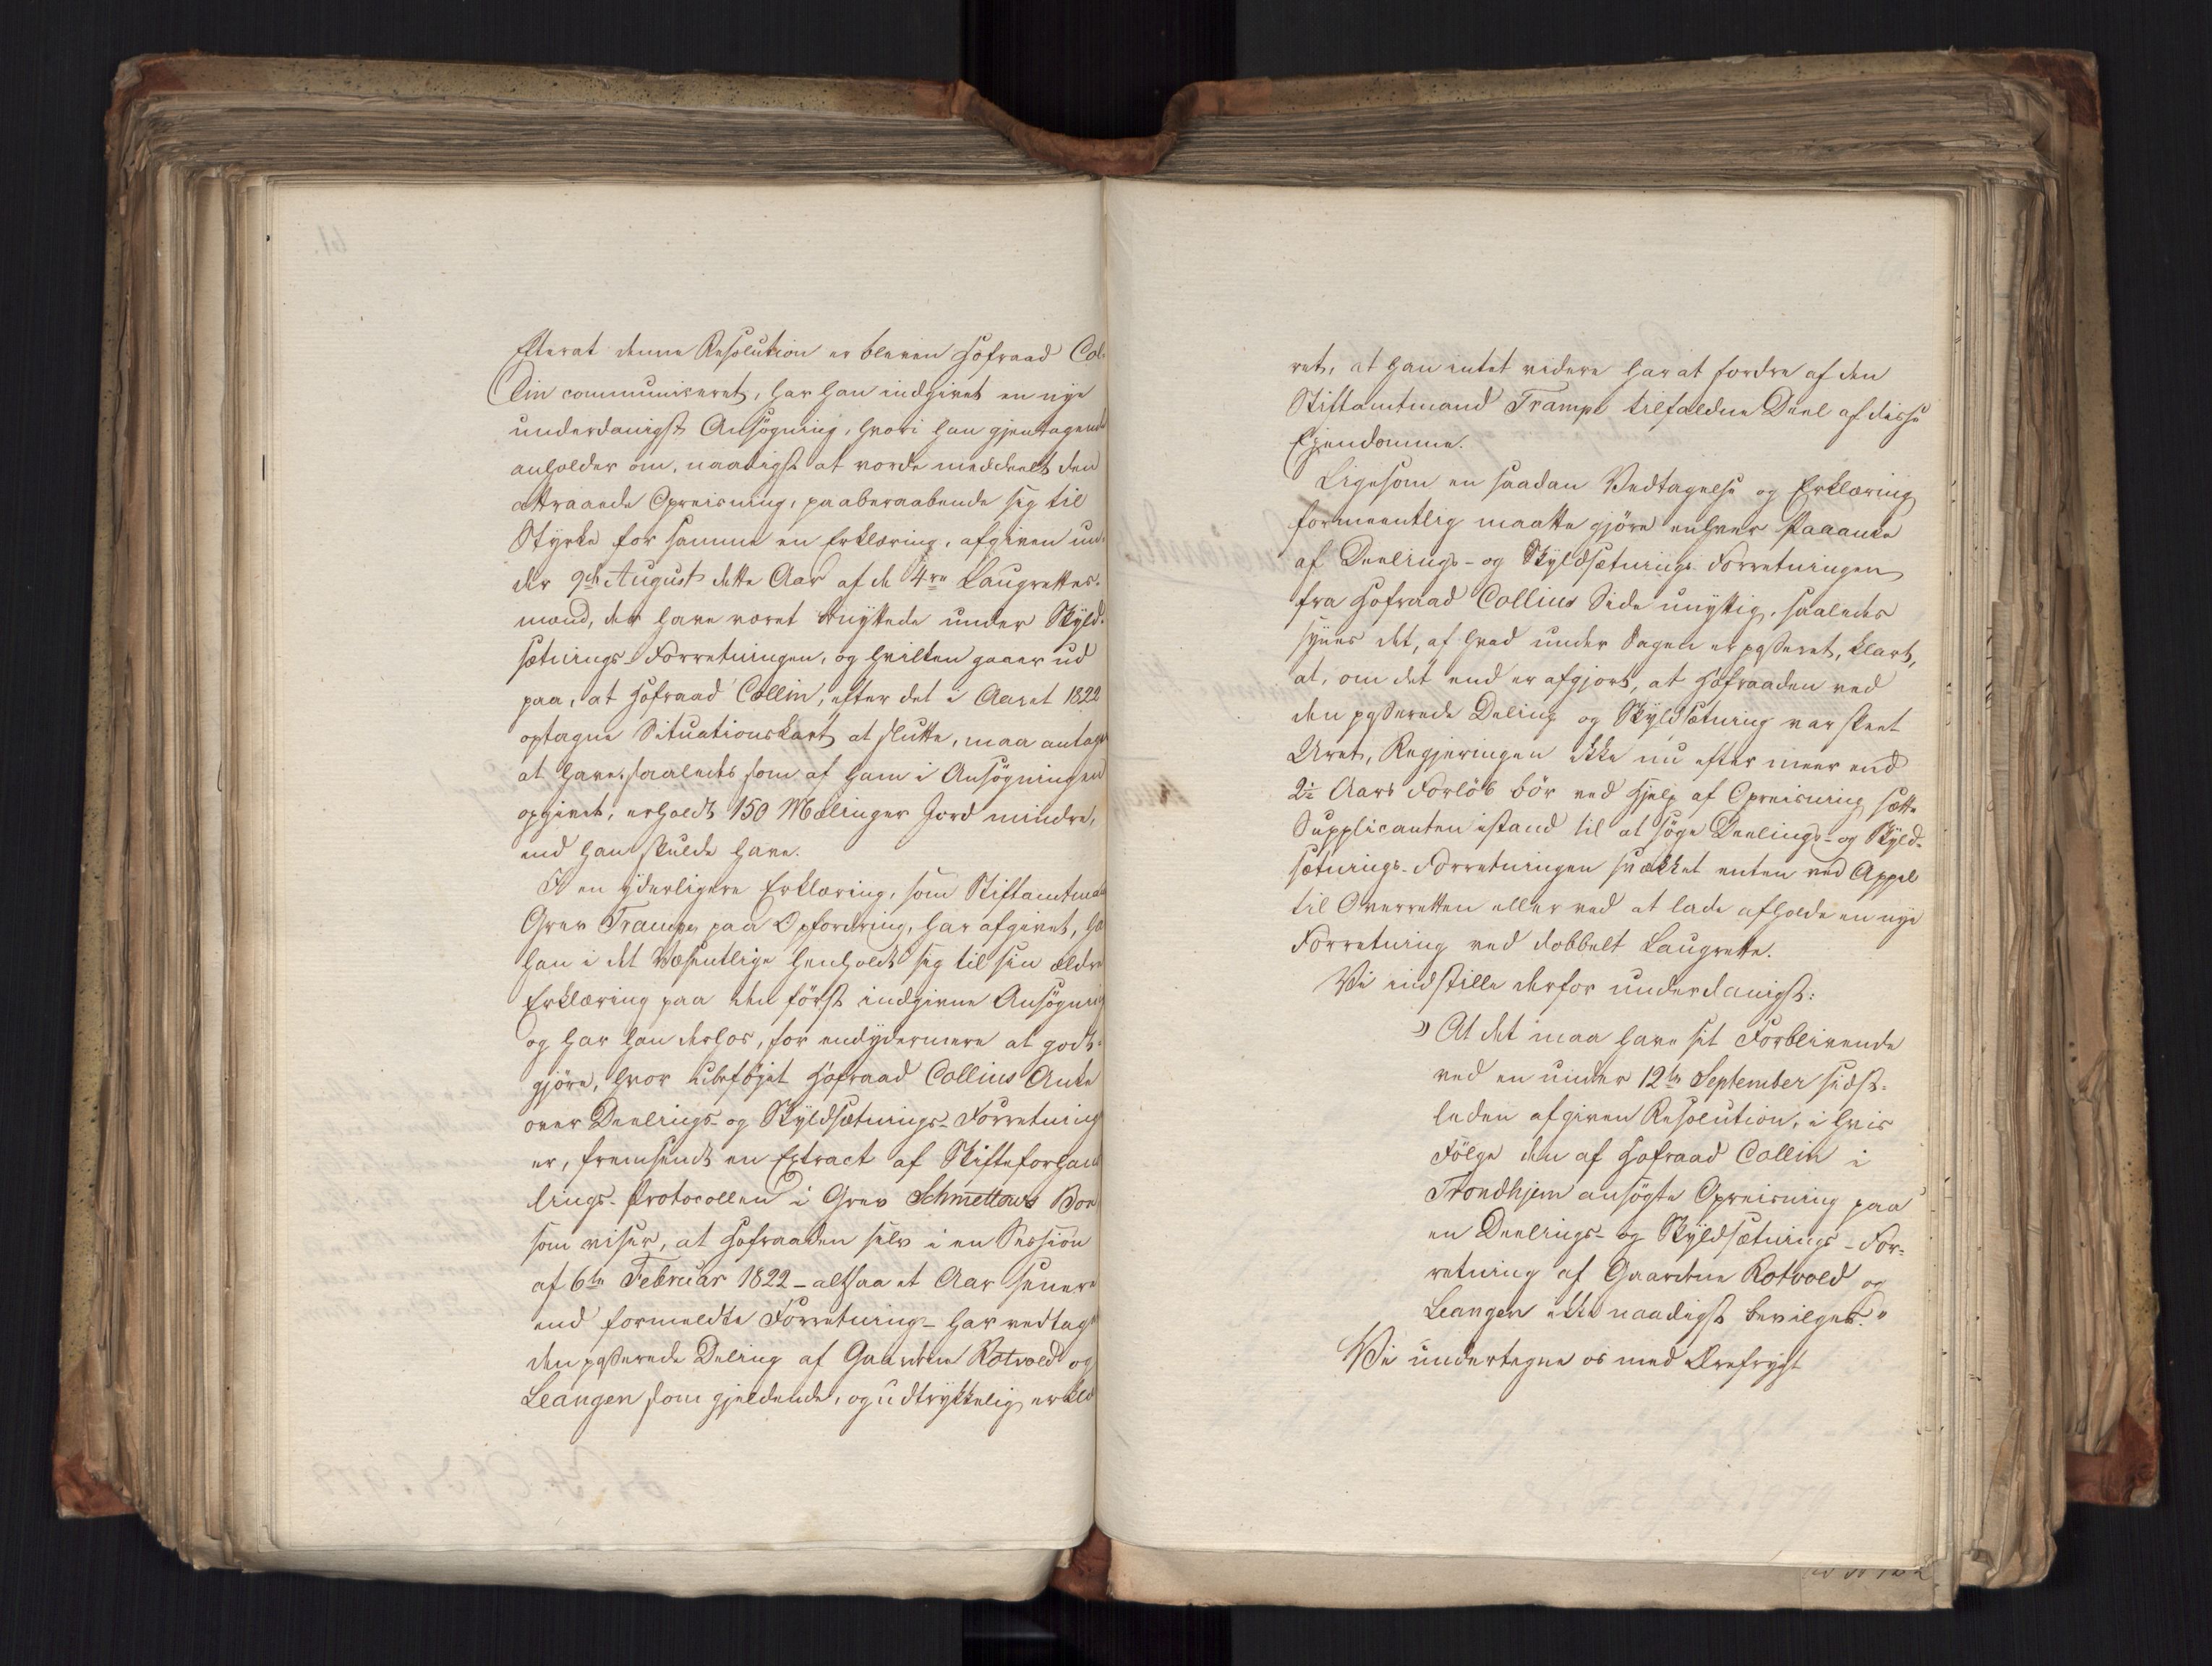 Efterat denne Resolution er bleven Hofraad Col-
lin communiceret, har han indgivet en nye
underdanigst Ansøgning, hvori han gjentagende
anholder om, naadigst at vorde meddeelt den
attraaede Opreisning, paaberaabende sig til
Styrke for samme en Erklæring, afgiven un-
der 9de August dette Aar af de 4re Laugrettes-
mænd, der have været benyttede under Skyld-
sætnings-Forretningen, og hvilken gaaer ud
paa, at Hofraad Collin, efter det i Aaret 1822
optagne Situationskart at slutte, maa antages
at have, saaledes som af ham i Ansøgningen
opgivet, erholdt 150 Mælinger Jord mindre,
end han skulde have.
I en yderligere Erklæring, som Stiftamtmand
Grev Trampe, paa Opfordring, har afgivet, har
han i det Væsentlige henholdt sig til sin ældre
Erklæring paa den först indgivne Ansøgning
og har han derhos, for endydermere at godt-
gjöre, hvor ubeföjet Hofraad Collins Anke
over Deelings- og Skyldsætnings-Forretning
er, fremsendt en Extract af Skifteforhand-
lings-Protocollen i Grev Schmettows Boe
som viser, at Hofraaden selv i en Session
af 6te Februar 1822 - altsaa et Aar senere
end formeldte Forretning - har vedtaget
den passerede Deling af Gaardene Rotvold og
Leangen som gjeldende, og udtrykkelig erklæ-
ret, at han intet videre har at fordre af den
Stiftamtmand Trampe tilfaldne Deel af disse
Ejendomme.
Ligesom en saadan Vedtagelse og Erklæring
formeentlig maatte gjöre enhver Paaanke
af Deelings- og Skyldsætnings-Forretningen
fra Hofraad Collins Side unyttig, saaledes
synes det, af hvad under Sagen er passeret, klart,
at, om det end er afgjort, at Hofraaden ved
den passerede Deling og Skyldsætning var skeet
Uret, Regjeringen ikke nu efter meer end
2½ Aars Forlöb bör ved Hjelp af Opreisning sætte
Supplicanten istand til at söge Deelings- og Skyld-
sætnings-Forretningen svækket enten ved Appel
til Overretten eller ved at lade afholde en nye
Forretning ved dobbelt Laugrette.
Vi indstille derfor underdanigst:
"At det maa have sit Forblivende
ved en under 12te September sidst-
leden afgiven Resolution, i hvis
Fölge den af Hofraad Collin i
Trondhjem ansögte Opreisning paa
en Deelings- og Skyldsætnings-For-
retning af Gaardene Rotvold og
Leangen ikke naadigst bevilges."
Vi undertegne os med Ærefrygt